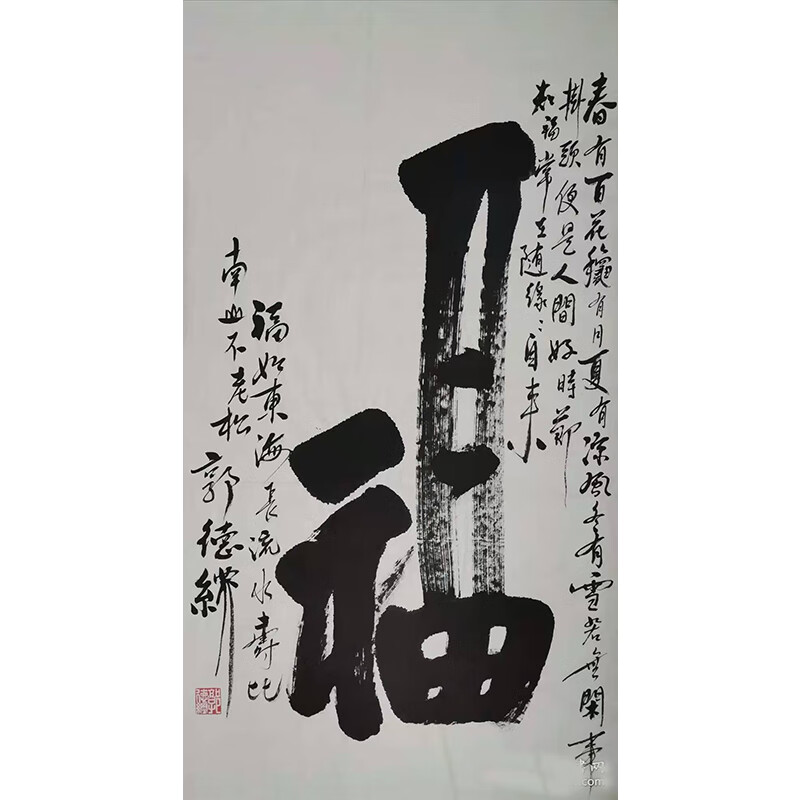 春有百花穐有月夏有涼風冬有雪若無閑事
掛頭便是人間好時節
知福常随緣〻自来
福
福如東海長流水壽比
南山不老松
郭德綱
网
.com